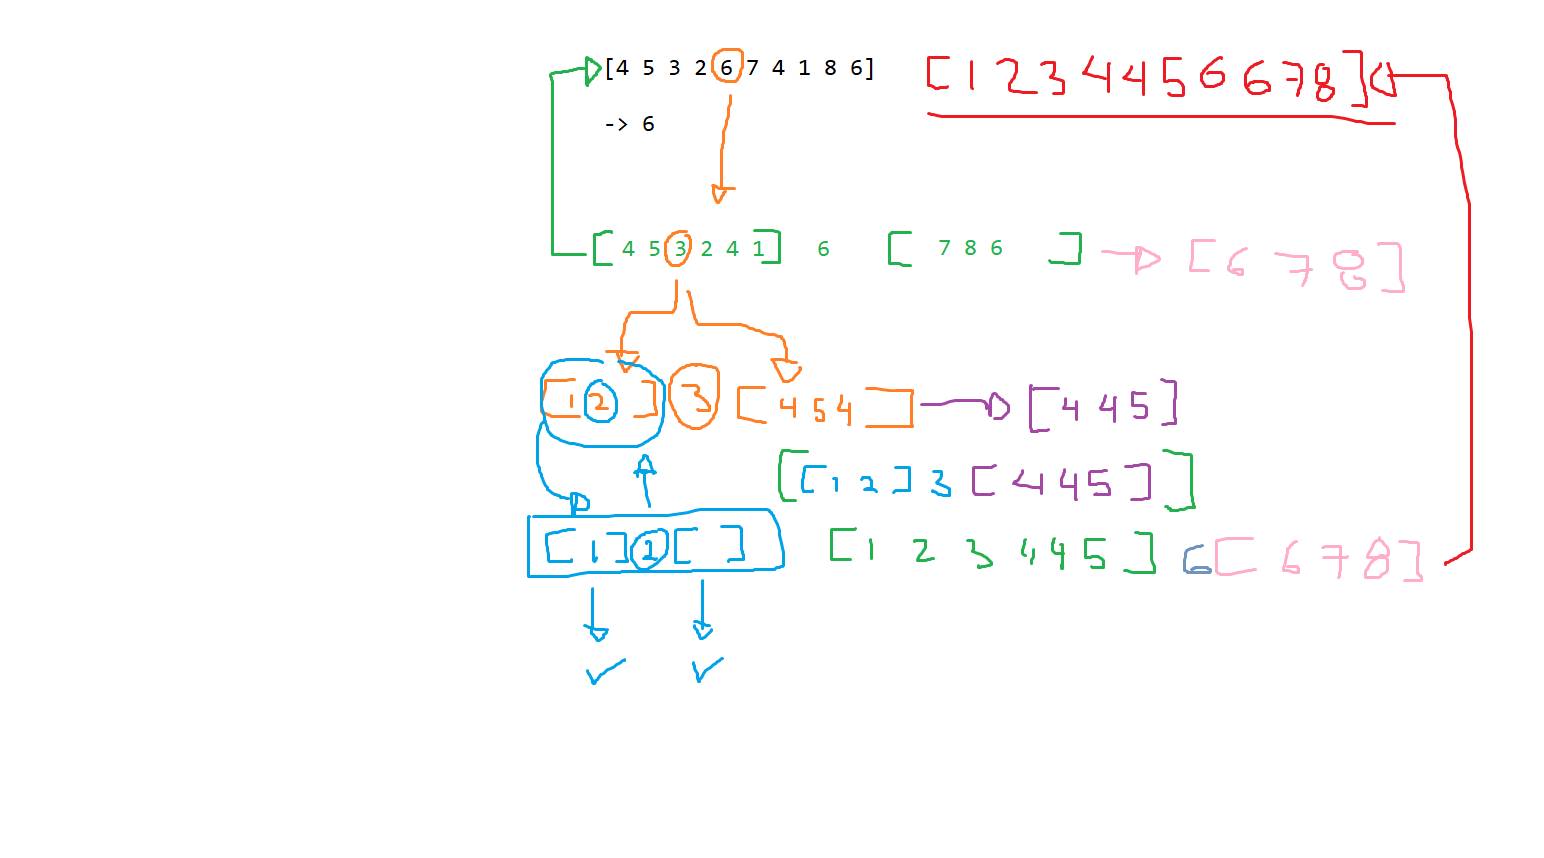 [4 5 3 2 6 7 4 1 8 6] [1 2 3 4 4 5 6 6 7 8]
-> 6
[4 5 3 2 4 1] 6 [7 8 6] [6 7 8]
[1 2] 3 [4 5 4] [4 4 5]
[[1 2] 3 [4 4 5]]
[1] 2 [ ] [1 2 3 4 4 5] 6 [6 7 8]